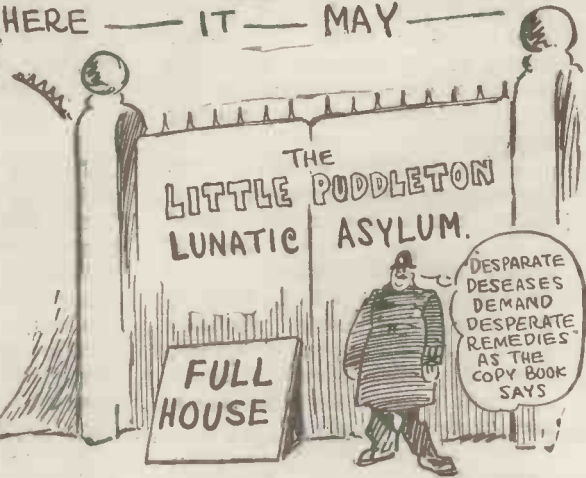 HERE — IT — MAY —
THE
LITTLE PUDDLETON
LUNATIC ASYLUM.
DESPARATE
DESEASES
DEMAND
DESPERATE
REMEDIES
AS THE
COPY BOOK
SAYS
FULL
HOUSE